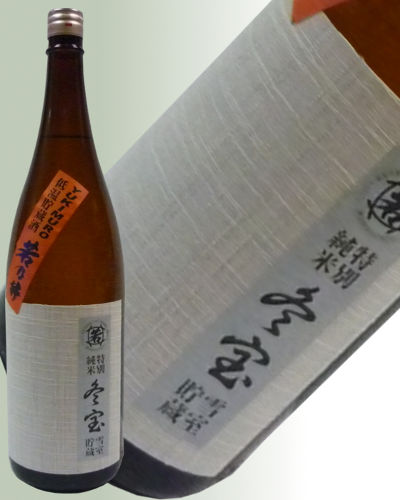 YUKIMURO
低温貯蔵酒
若乃井
特別
純米
冬宝
雪室
貯蔵
特別
純米
冬宝
雪室
貯蔵